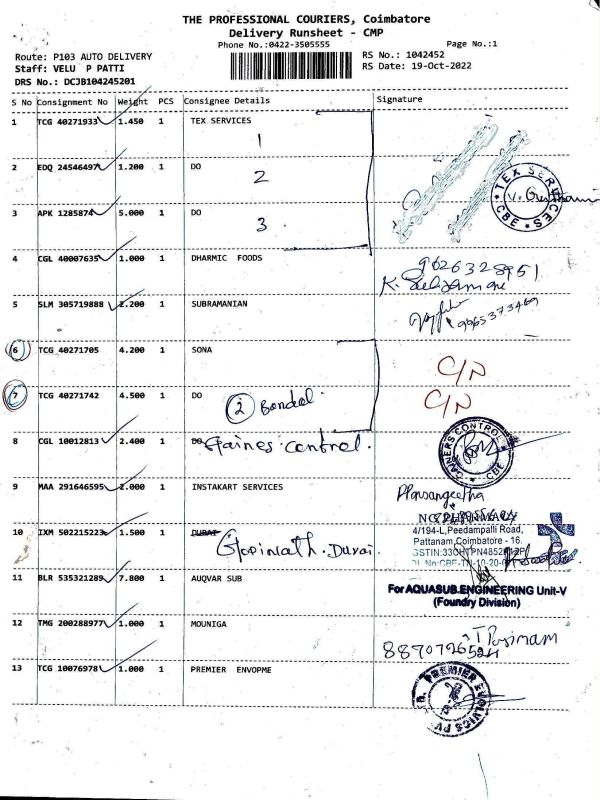 THE PROFESSIONAL COURIERS, Coimbatore
Delivery Runsheet - CMP
Phone No.:0422-3505555
Page No.:1
Route: P103 AUTO DELIVERY
RS No.: 1042452
Staff: VELU P PATTI
RS Date: 19-Oct-2022
DRS No.: DCJB104245201
S No Consignment No Weight PCS Consignee Details Signature
1 TCG 40271933 1.450 1 TEX SERVICES
1
2 EDQ 24546497 1.200 1 DO
2
TEX SERVICES * CBE *
3 APK 1285874 5.000 1 DO
3
4 CGL 40007635 1.000 1 DHARMIC FOODS
9626328951
5 SLM 305719888 2.200 1 SUBRAMANIAN
9965373469
6 TCG 40271705 4.200 1 SONA
C/N
7 TCG 40271742 4.500 1 DO
2 Bondel.
C/N
8 CGL 10012813 2.400 1 DO
Gaines control.
GAINERS CONTROL * CBE *
9 MAA 291646595 2.000 1 INSTAKART SERVICES
10 IXM 502215223 1.500 1 DURAI
Gopinath. Durai.
4/194-L, Peedampalli Road,
Pattanam, Coimbatore - 16.
11 BLR 535321289 7.800 1 AUQVAR SUB
For AQUASUB ENGINEERING Unit-V
(Foundry Division)
12 TMG 200288977 1.000 1 MOUNIGA
8870726524
13 TCG 10076978 1.000 1 PREMIER ENVOPME
PREMIER